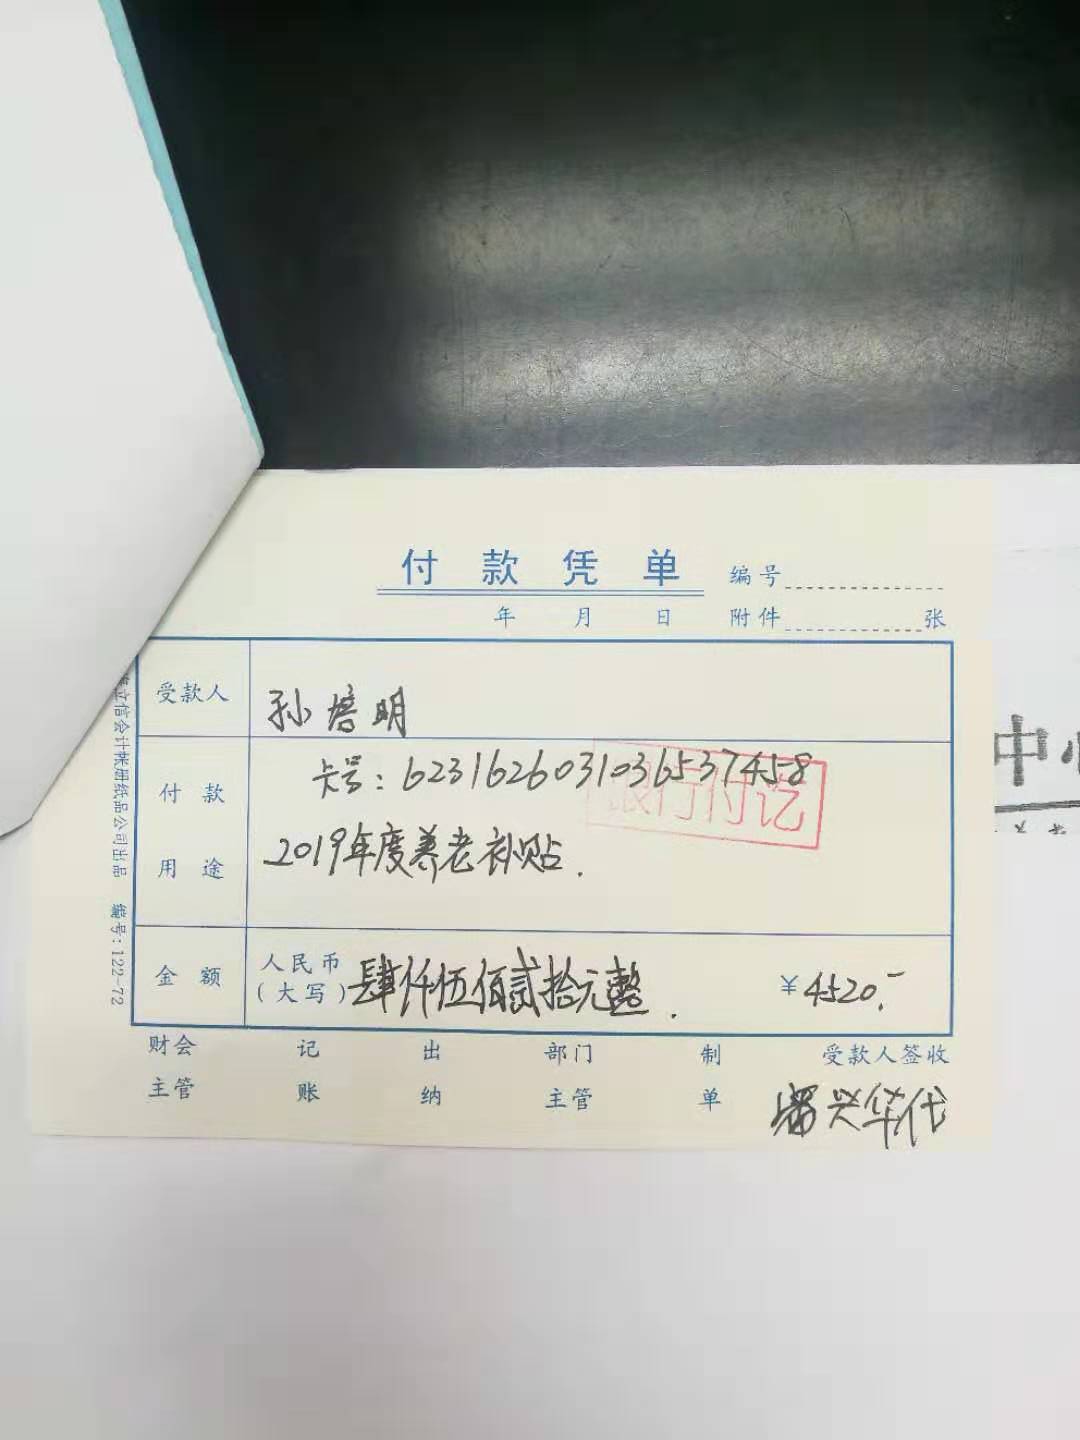 付款凭单
编号
年 月 日
附件 张
受款人
孙培明
付款
用途
卡号：6231626031036537458
银行付讫
2019年度养老补贴.
金额
人民币
(大写)
肆仟伍佰贰拾元整.
¥4520.-
财会
主管
记
账
出
纳
部门
主管
制
单
受款人签收
兴华代
立信会计帐册纸品公司出品 编号:122-72
中心